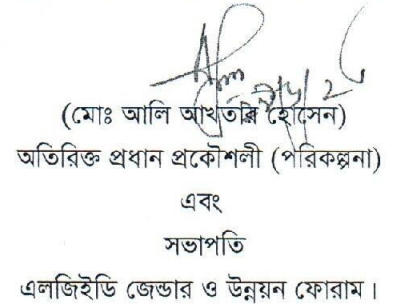 (মোঃ আলি আখতার হোসেন)
অতিরিক্ত প্রধান প্রকৌশলী (পরিকল্পনা)
এবং
সভাপতি
এলজিইডি জেন্ডার ও উন্নয়ন ফোরাম।